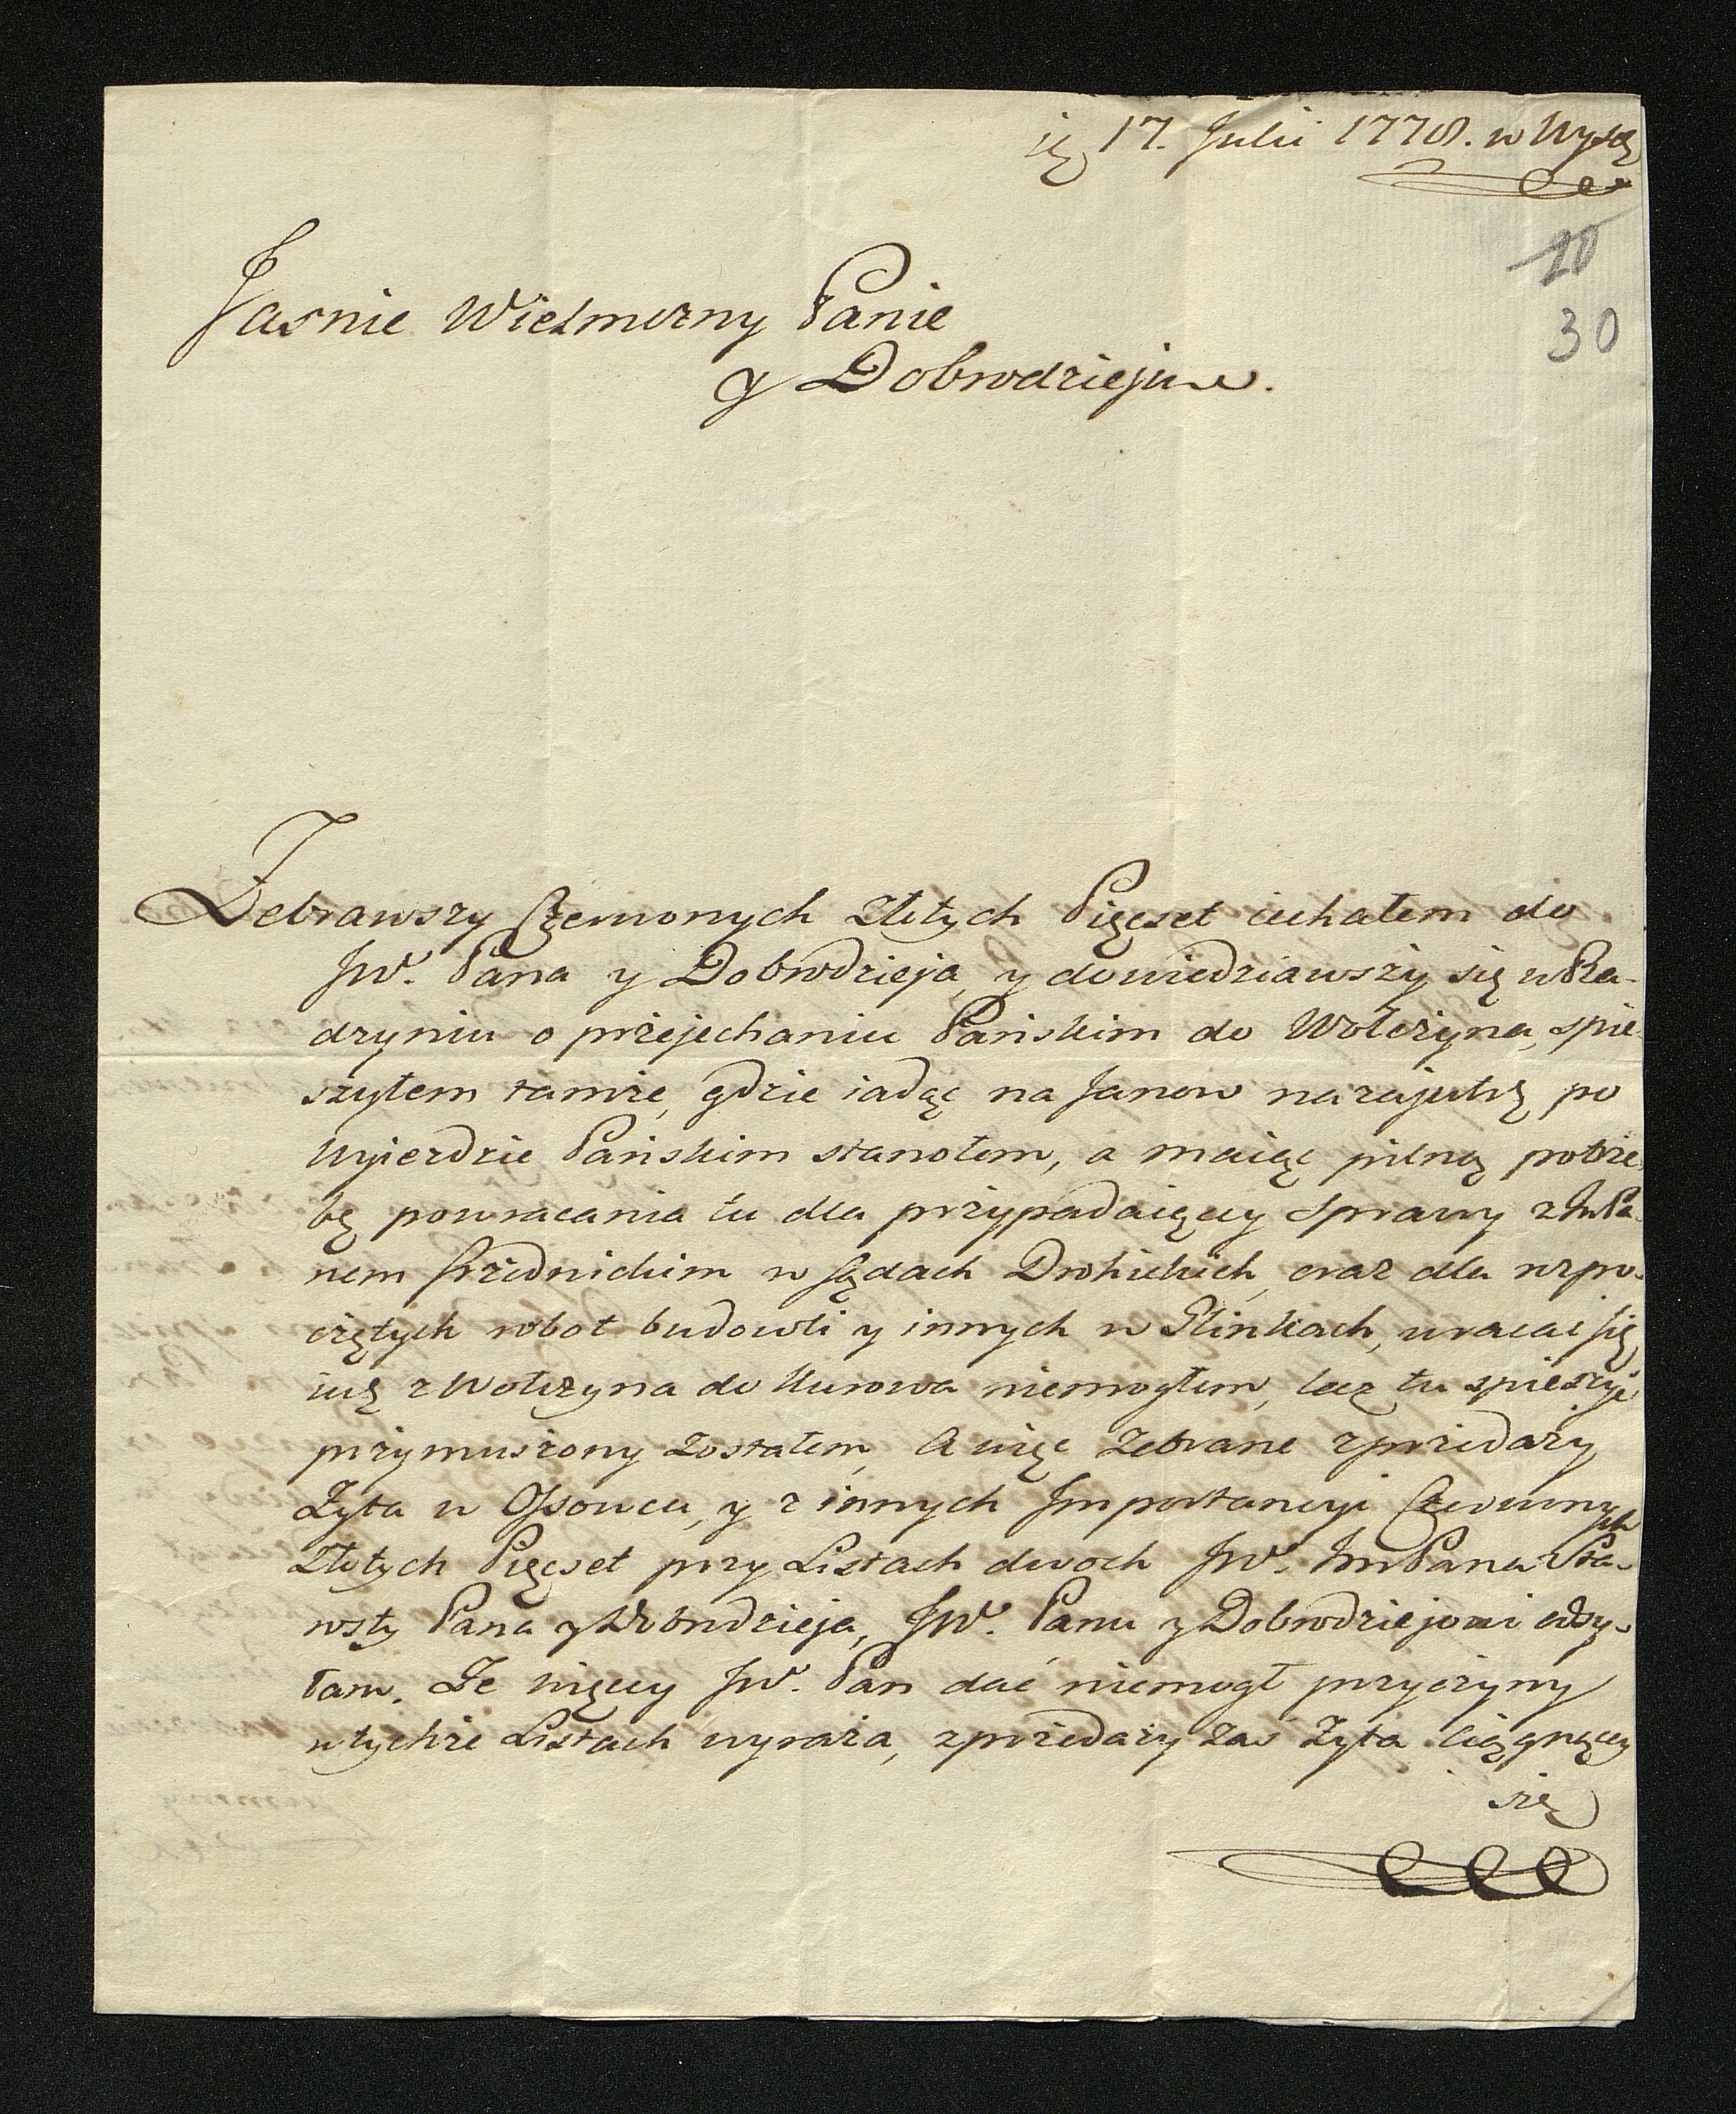 17. Julii 1778. w Wyso
20
30
Jasnie Wielmozny Panie
y Dobrodzieju.
Zebrawszy Czerwonych Złotych Pięcset iechałem do
JW. Pana y Dobrodzieja, y dowiedziawszy się w Ra-
dzyniu o przejechaniu Pańskim do Wołczyna, spie
szyłem tamże, gdzie iadąc na Janow nazajutrz po
Wyjezdzie Pańskim stanołem, a maiąc pilną potrze
bę powracania tu dla przypadaiącey Sprawy z ImPa
nem Srzednickim w sądach Drohickich, oraz dla rozpo-
czętych robot budowli y innych w Klinkach, wracac się
iuż z Wołczyna do Kurowa niemogłem, lecz tu spieszyć
przymuszony zostałem, A więc zebrane zprzedaży
Żyta w Ossowcu, y z innych Importancyi Czerwonych
Złotych Pięcset przy Listach dwoch JW. ImPana Sta-
wsty Pana y Dobrodzieja, JW. Panu y Dobrodziejowi odsy-
łam. Że więcey JW. Pan dać niemogł przyczyny
w tychże Listach wyraża, zprzedaży zas Żyta ciągnącey
się